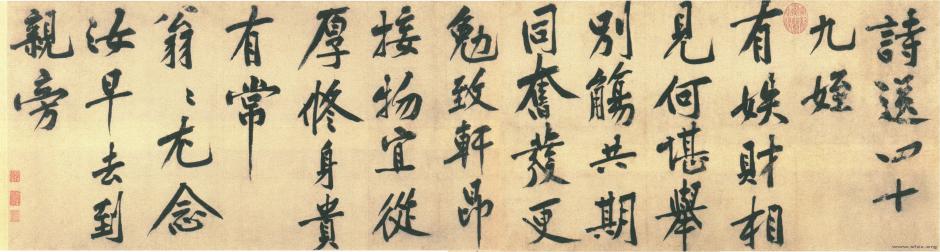 詩送四十
九姪
有娭財相
見何堪舉
別觴共期
同奮發更
勉致軒昂
接物宜從
厚脩身貴
有常
翁〻尤念
汝早去到
親旁